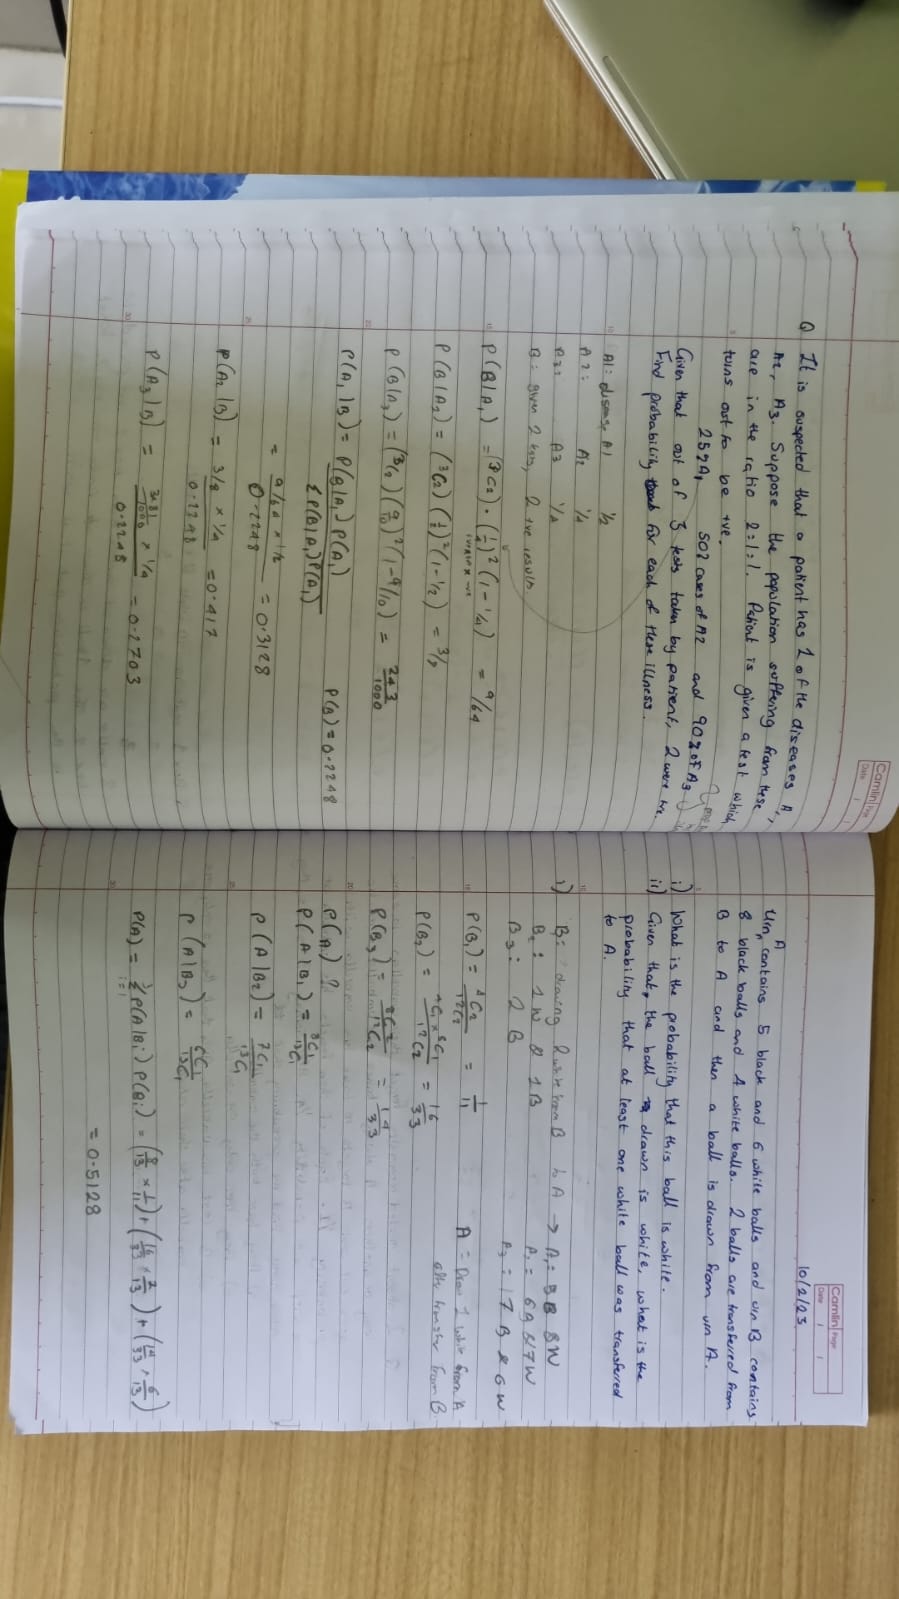 Camlin Page
Date / /
Q It is suspected that a patient has 1 of the diseases A1,
A2, A3. Suppose the population suffering from these
are in the ratio 2:1:1. Patient is given a test which
turns out to be +ve.
25% A1 50% cases of A2 and 90% of A3
Given that out of 3 tests taken by patient, 2 were +ve.
Find probability for each of these illness.
A1: disease A1 1/2
A2: A2 1/4
A3: A3 1/4
B: given 2 +ve results
P(B|A1) = (3C2) · (1/4)² (1 - 1/4) = 9/64
P(B|A2) = (3C2) (1/2)² (1 - 1/2) = 3/8
P(B|A3) = (3C2) (9/10)² (1 - 9/10) = 243/1000
P(A1|B) = P(B|A1) P(A1) / Σ P(B|Ai) P(Ai) P(B) = 0.2248
= 9/64 × 1/2 / 0.2248 = 0.3128
P(A2|B) = 3/8 × 1/4 / 0.2248 = 0.417
P(A3|B) = /1000 × 1/4 / 0.2248 = 0.2703
Camlin Page
Date / /
10/2/23
Urn A contains 5 black and 6 white balls and urn B contains
8 black balls and 4 white balls. 2 balls are transferred from
B to A and then a ball is drawn from urn A.
i) What is the probability that this ball is white.
ii) Given that, the ball drawn is white, what is the
probability that at least one white ball was transferred
to A.
i) B1: drawing 2 white from B to A → A1 = 5B 8W
B2: 1W & 1B A2 = 6B & 7W
B3: 2B A3 = 7B & 6W
P(B1) = 4C2/12C2 = 1/11 A = Draw 1 white from A
after transfer from B
P(B2) = 4C1 × 8C1 / 12C2 = 16/33
P(B3) = 8C2/12C2 = 14/33
P(A)?
P(A|B1) = 8C1/13C1
P(A|B2) = 7C1/13C1
P(A|B3) = 6C1/13C1
P(A) = Σ P(A|Bi) P(Bi) = (8/13 × 1/11) + (16/33 × 7/13) + (14/33 × 6/13)
= 0.5128